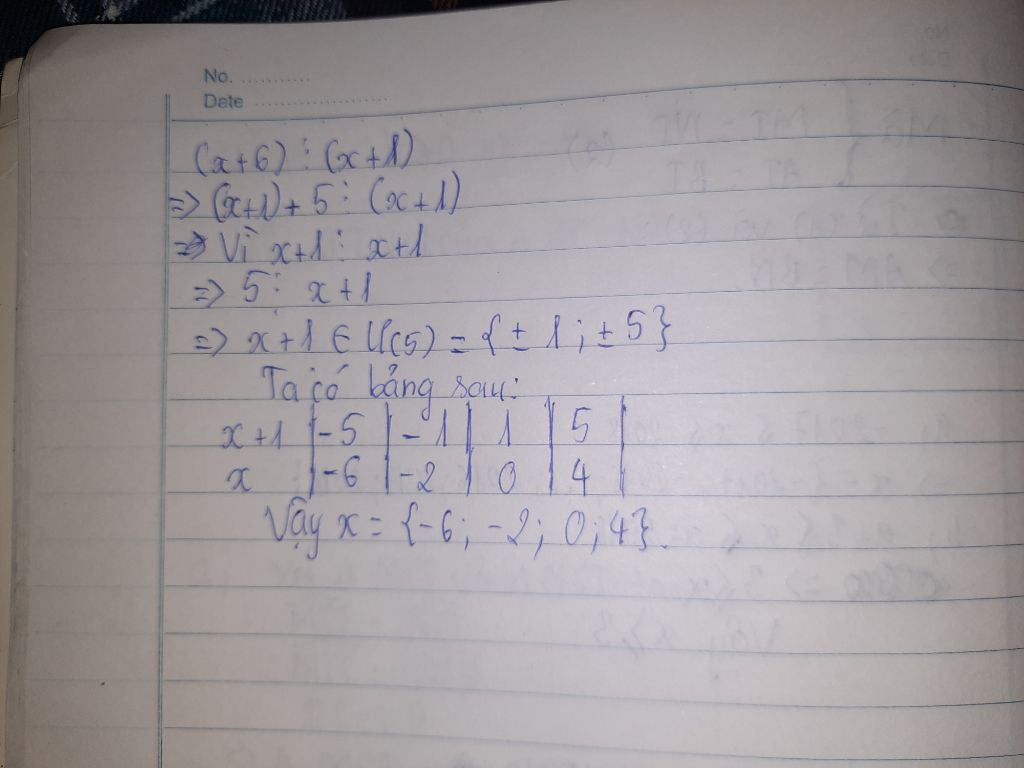 No. ............
Date ......................
(x+6) ⋮ (x+1)
=> (x+1) + 5 ⋮ (x+1)
=> Vì x+1 ⋮ x+1
=> 5 ⋮ x+1
=> x+1 ∈ Ư(5) = {± 1 ; ± 5}
Ta có bảng sau:
x+1 | -5 | -1 | 1 | 5 |
x | -6 | -2 | 0 | 4 |
Vậy x = {-6; -2; 0; 4}.